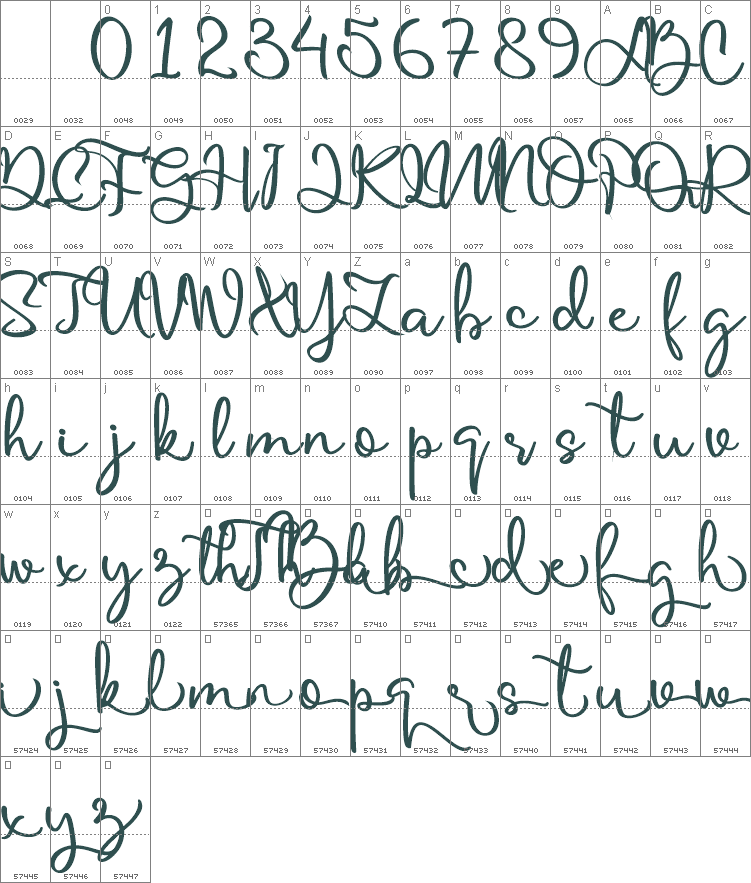 0 1 2 3 4 5 6 7 8 9 A B C
0 1 2 3 4 5 6 7 8 9 A B C
0029 0032 0048 0049 0050 0051 0052 0053 0054 0055 0056 0057 0065 0066 0067
D E F G H I J K L M N O P Q R
D E F G H I J K L M N O P Q R
0068 0069 0070 0071 0072 0073 0074 0075 0076 0077 0078 0079 0080 0081 0082
S T U V W X Y Z a b c d e f g
S T U V W X Y Z a b c d e f g
0083 0084 0085 0086 0087 0088 0089 0090 0097 0098 0099 0100 0101 0102 0103
h i j k l m n o p q r s t u v
h i j k l m n o p q r s t u v
0104 0105 0106 0107 0108 0109 0110 0111 0112 0113 0114 0115 0116 0117 0118
w x y z
w x y z th Th B a b c d e f g h
0119 0120 0121 0122 57365 57366 57367 57410 57411 57412 57413 57414 57415 57416 57417
i j k l m n o p q r s t u v w
57424 57425 57426 57427 57428 57429 57430 57431 57432 57433 57440 57441 57442 57443 57444
x y z
57445 57446 57447